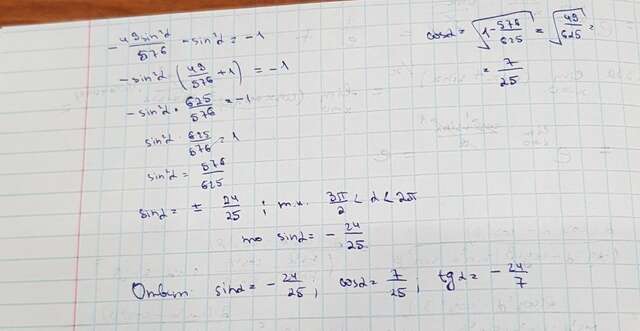 -49sin²α/576 - sin²α = -1
-sin²α (49/576 + 1) = -1
-sin²α · 625/576 = -1
sin²α · 625/576 = 1
sin²α = 576/625
sinα = ± 24/25 ; т.к. 3π/2 < α < 2π
то sinα = - 24/25
cosα = √(1 - 576/625) = √(49/625) =
= 7/25
Ответ: sinα = - 24/25 ; cosα = 7/25 ; tgα = - 24/7